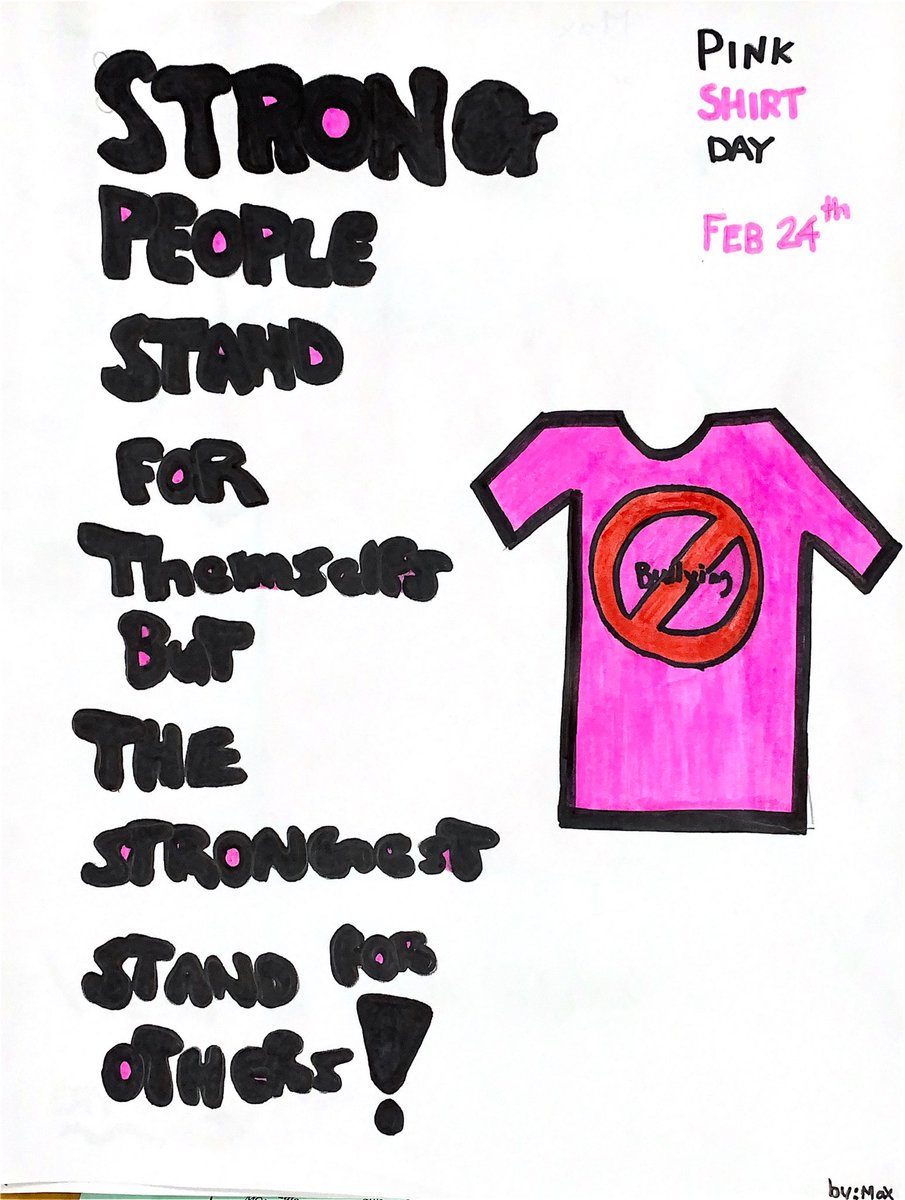 STRONG
PEOPLE
STAND
FOR
Themselfs
BUT
THE
STRONGEST
STAND FOR
OTHERS!
PINK
SHIRT
DAY
FEB 24th
Bullying
by: Max